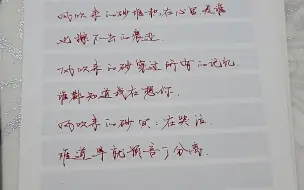 风吹来的砂堆积在心里是谁
也擦不去的痕迹
风吹来的砂穿过所有的记忆
谁都知道我在想你
风吹来的砂冥冥在哭泣
难道早就预言了分离